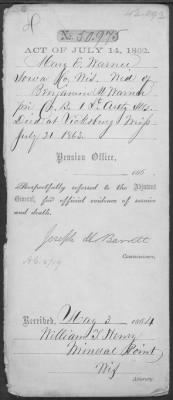 No. 50,975
ACT OF JULY 14, 1862.
Mary E. Warner
Iowa Co, Wis. Wid of
Benjamin Warner
Pri Co. B. 1 Lt. Arty Ills.
Died at Vicksburg Miss
July 31. 1863.
Pension Office,
186 .
Respectfully referred to the Adjutant
General, for official evidence of service
and death.
Joseph H Barrett
Commissioner.
Received, May 3 1864
William T. Henry
Mineral Point
Wis
Attorney.